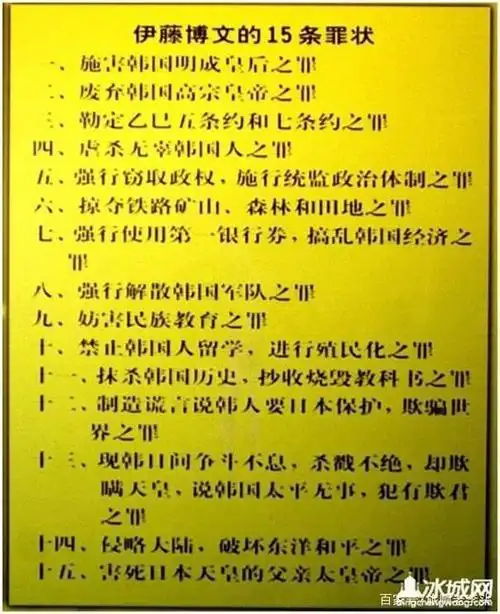 伊藤博文的15条罪状
一、施害韩国明成皇后之罪
二、废弃韩国高宗皇帝之罪
三、勒定乙巳五条约和七条约之罪
四、虐杀无辜韩国人之罪
五、强行窃取政权，施行统监政治体制之罪
六、掠夺铁路矿山、森林和田地之罪
七、强行使用第一银行券，搞乱韩国经济之
罪
八、强行解散韩国军队之罪
九、妨害民族教育之罪
十、禁止韩国人留学，进行殖民化之罪
十一、抹杀韩国历史，抄收烧毁教科书之罪
十二、制造谎言说韩人要日本保护，欺骗世
界之罪
十三、现韩日间争斗不息，杀戮不绝，却欺
瞒天皇，说韩国太平无事，犯有欺君
之罪
十四、侵略大陆，破坏东洋和平之罪
十五、害死日本天皇的父亲太皇帝之罪
冰城网